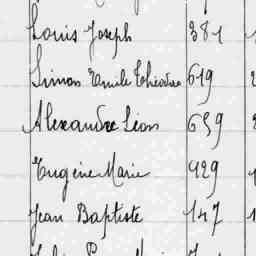 Louis Joseph 381
Simon Emile Théodore 619
Alexandre Léon 659
Eugène Marie 929
Jean Baptiste 147